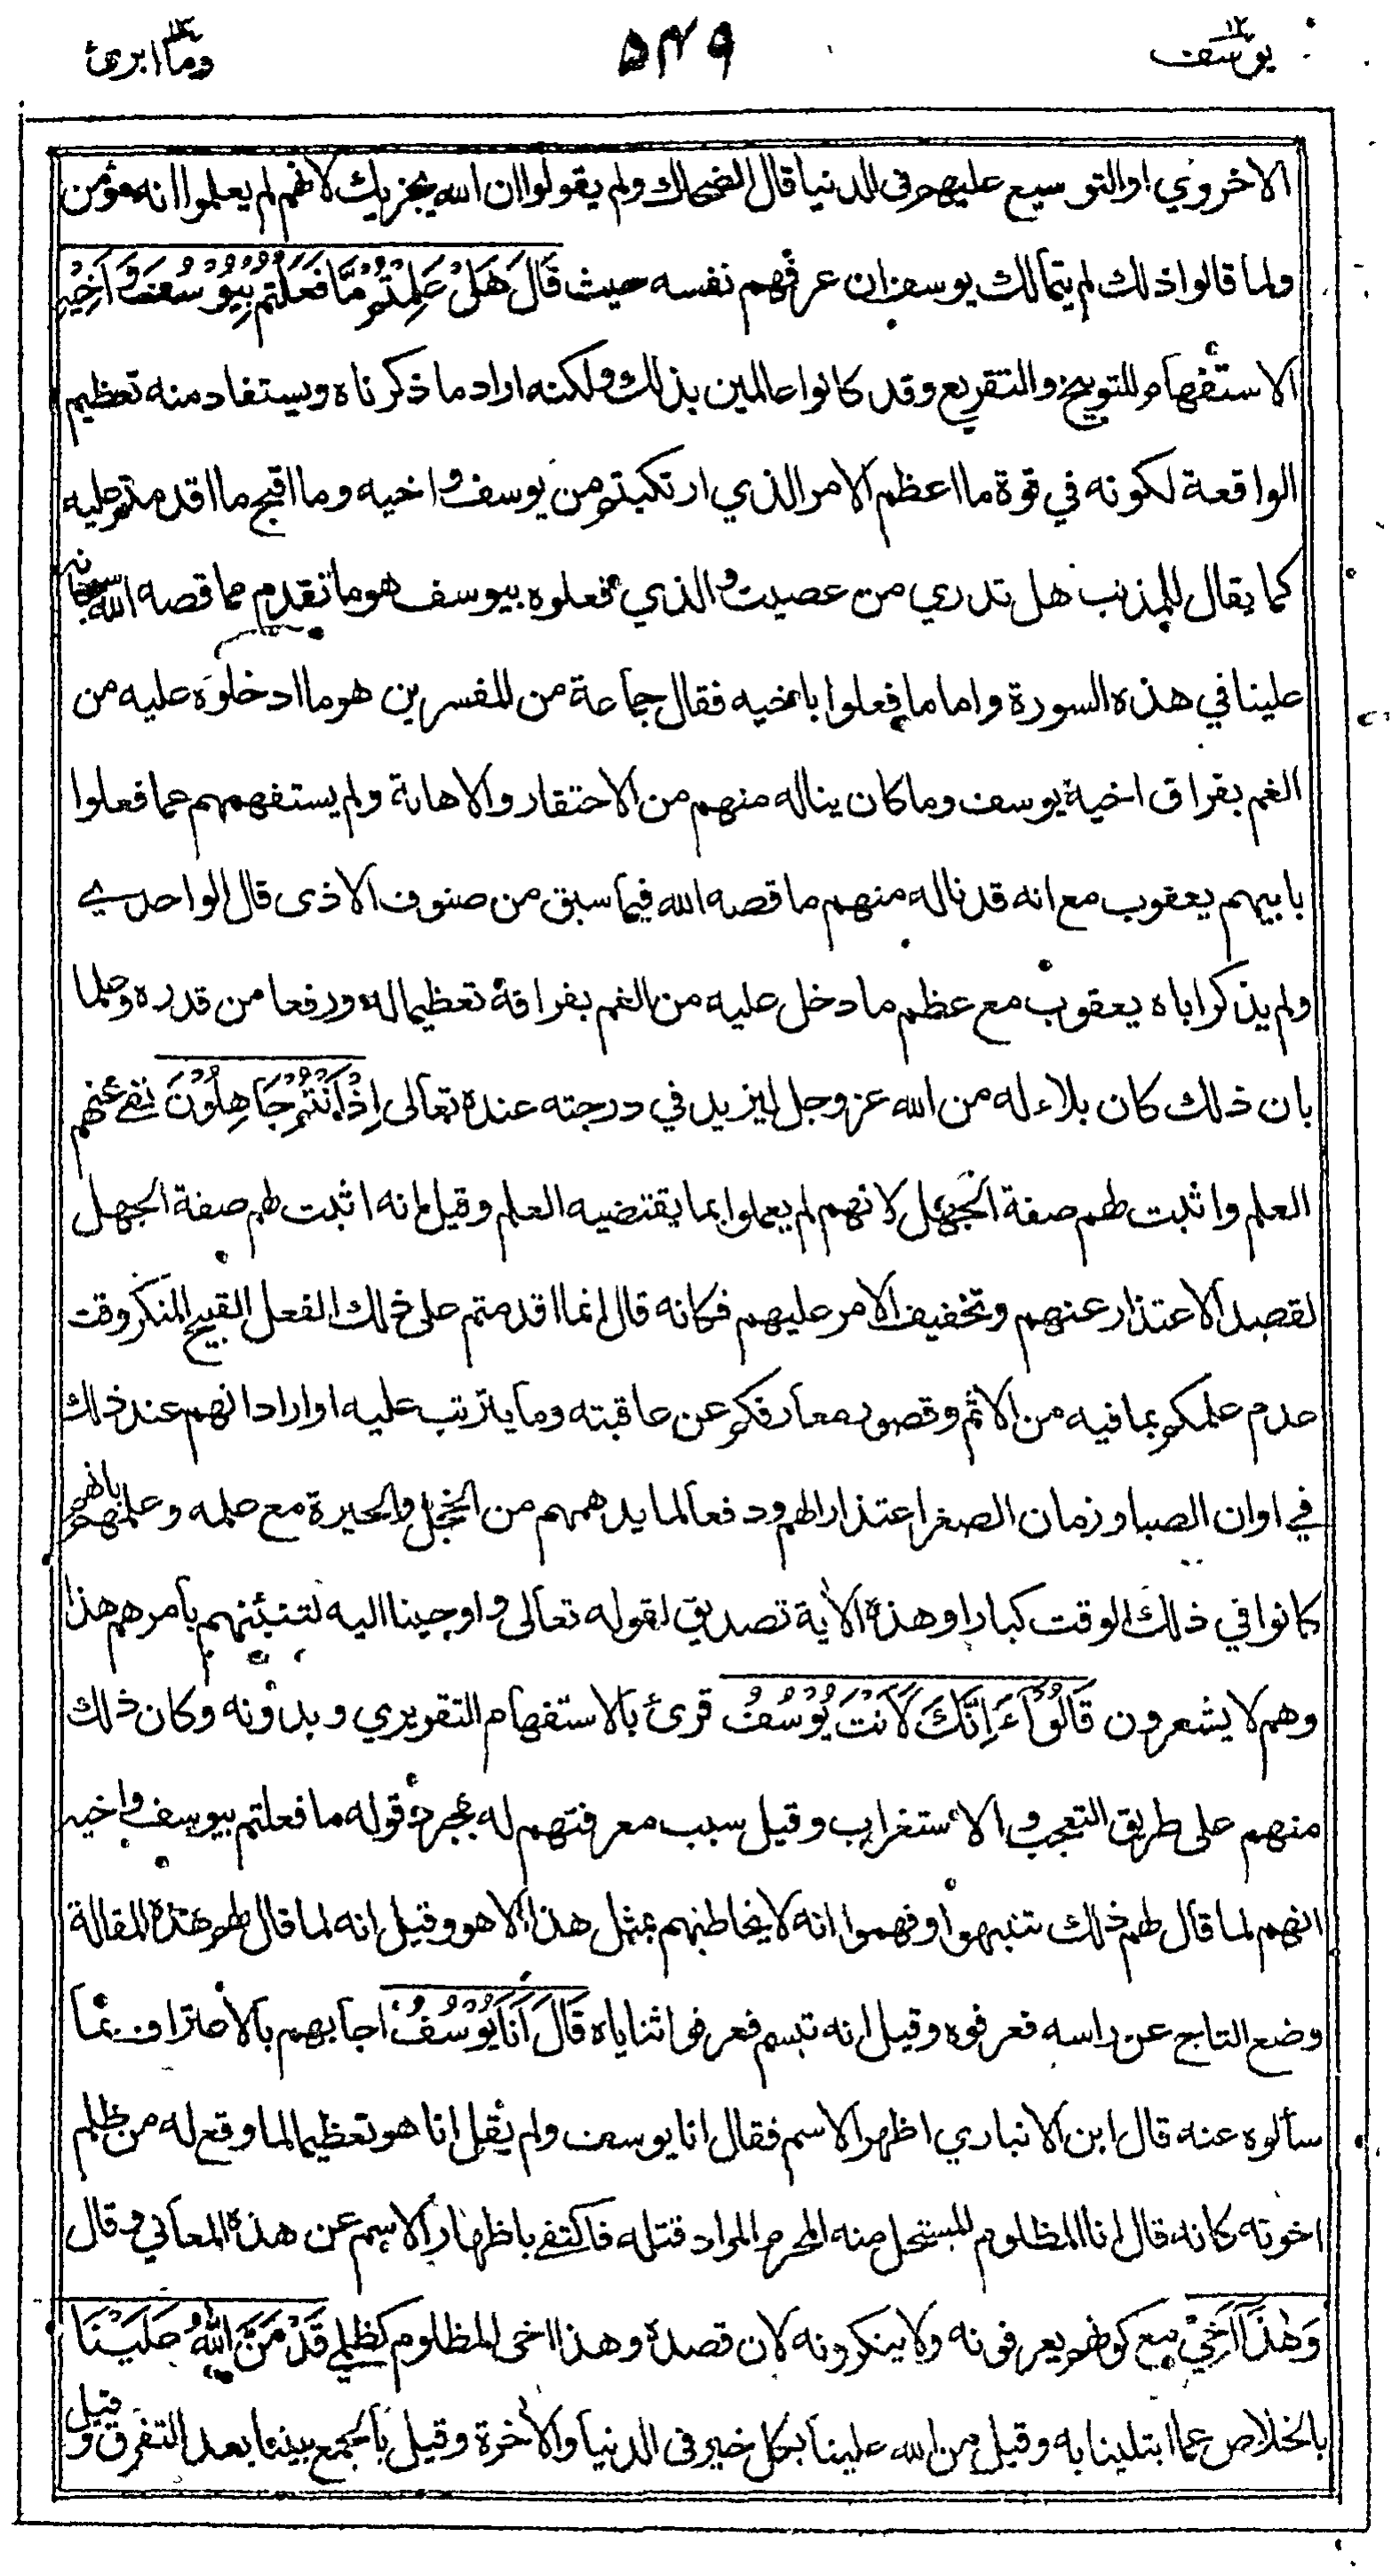 يوسف ١٢
٥٤٩
وما ابرئ ١٣
الاخروي او التوسيع عليهم فى الدنيا قال الضحاك ولم يقولوا ان الله يجزيك لانهم لم يعلموا انه مؤمن
ولما قالوا ذلك لم يتمالك يوسف ان عرفهم نفسه حيث قَالَ هَلْ عَلِمْتُمْ مَّا فَعَلْتُمْ بِيُوْسُفَ وَاَخِيْهِ
الاستفهام للتوبيخ والتقريع وقد كانوا عالمين بذلك ولكنه اراد ما ذكرناه ويستفاد منه تعظيم
الواقعة لكونه في قوة ما اعظم الامر الذي ارتكبتم من يوسف واخيه وما اقبح ما اقدمتم عليه
كما يقال للمذنب هل تدري من عصيت والذي فعلوه بيوسف هو ما تقدم مما قصه الله سبحانه
علينا في هذه السورة واما ما فعلوا باخيه فقال جماعة من المفسرين هو ما ادخلوه عليه من
الغم بفراق اخيه يوسف وما كان يناله منهم من الاحتقار والاهانة ولم يستفهمهم عما فعلوا
بابيهم يعقوب مع انه قد ناله منهم ما قصه الله فيما سبق من صنوف الاذى قال الواحدي
ولم يذكر اباه يعقوب مع عظم ما دخل عليه من الغم بفراقه تعظيما له ورفعا من قدره وعلما
بان ذلك كان بلاء له من الله عز وجل ليزيد في درجته عنده تعالى اِذْ اَنْتُمْ جَاهِلُوْنَ نفى عنهم
العلم واثبت لهم صفة الجهل لانهم لم يعملوا بما يقتضيه العلم وقيل انه اثبت لهم صفة الجهل
لقصد الاعتذار عنهم وتخفيف الامر عليهم فكانه قال انما اقدمتم على ذلك الفعل القبيح المنكر وقت
عدم علمكم بما فيه من الاثم وقصور معارفكم عن عاقبته وما يترتب عليه او اراد انهم عند ذلك
في اوان الصبا وزمان الصغر اعتذارا لهم ودفعا لما يدهمهم من الخجل والحيرة مع علمه وعلمهم بانهم
كانوا في ذلك الوقت كبارا وهذه الأية تصديق لقوله تعالى واوحينا اليه لتنبئنهم بأمرهم هذا
وهم لا يشعرون قَالُوْا ءَاِنَّكَ لَاَنْتَ يُوْسُفُ قرئ بالاستفهام التقريري وبدونه وكان ذلك
منهم على طريق التعجب والاستغراب وقيل سبب معرفتهم له بمجرد قوله ما فعلتم بيوسف واخيه
انهم لما قال لهم ذلك تنبهوا وفهموا انه لا يخاطبهم بمثل هذا الا هو وقيل انه لما قال لهم هذه المقالة
وضع التاج عن راسه فعرفوه وقيل انه تبسم فعرفوا ثناياه قَالَ اَنَا يُوْسُفُ اجابهم بالاعتراف بما
سألوه عنه قال ابن الانباري اظهر الاسم فقال انا يوسف ولم يقل انا هو تعظيما لما وقع له من ظلم
اخوته كانه قال انا المظلوم المستحل منه المحرم المراد قتله فاكتفى باظهار الاسم عن هذه المعاني وقال
وَهٰذَا اَخِيْ مع كونهم يعرفونه ولا ينكرونه لان قصده وهذا اخى المظلوم كظلمي قَدْ مَنَّ اللّٰهُ عَلَيْنَا
بالخلاص عما ابتلينا به وقيل من الله علينا بكل خير فى الدنيا والأخرة وقيل بالجمع بيننا بعد التفرق وقيل